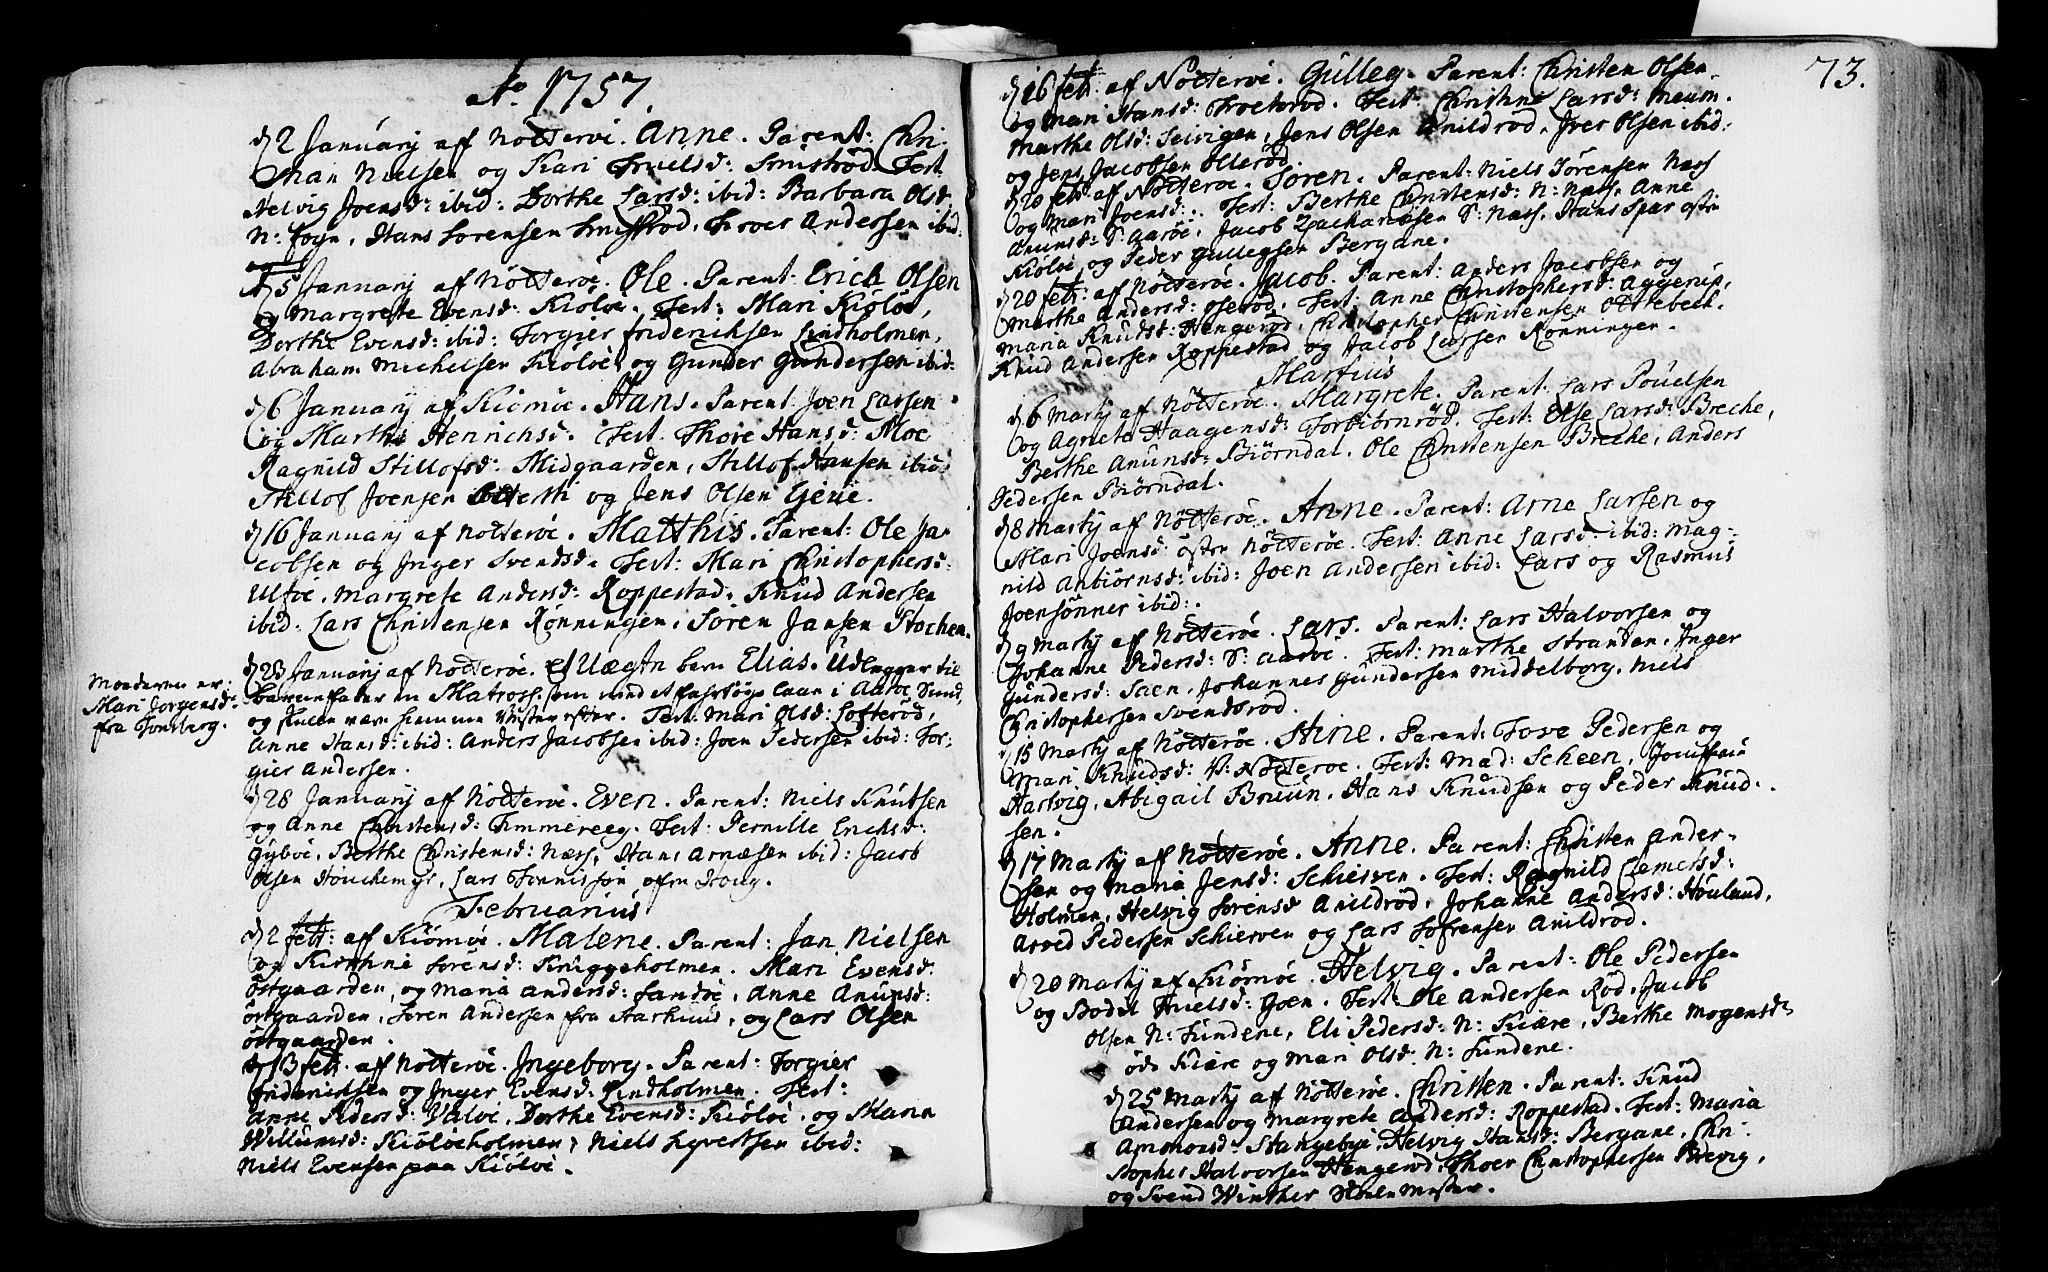 Ao 1757.
d 2 Januarij af Nötteröe. Anne. Parent: Chri-
stian Nielsen og Kari Truelsd: Smidsröd. Test.
Helvig Joensd: ibid: Dorthe Larsd: ibid: Barbara Olsd:
N: Foyn, Hans Sörensen Smidsröd, Troes Andersen ibid:
d 5 Januarij af Nötteröe. Ole. Parent: Erich Olsen
og Margrete Evensd: Kiölöe. Test: Mari Kiölöe,
Dorthe Evensd: ibid: Torgier Frideriksen Lindholmen,
Abraham Michelsen Kiolöe og Gunder Gundersen ibid:
d 6 Januarij af Kiömöe. Hans. Parent: Joen Larsen
og Marthe Henrichsd. Test. Thore Hansd: Moe
Ragnild Stillofsd: Midgaarden, Stillof Hansen ibid:
Stillof Joensen og Jens Olsen Gierie.
d 16 Januarij af Nötteröe. Matthis. Parent: Ole Ja-
cobsen og Inger Svendsd. Test: Mari Christophersd:
Ulföe. Margrete Andersd: Roppestad. Knud Andersen
ibid: Lars Christensen Rönningen, Sören Jansen Stochen.
d 23 Januarij af Nötteröe. et Uægte barn Elias. Udlegger til
barnefader en Matros, som med et fahrtöy laae i Aaröe Sund,
og skulle være hiemme Vester efter. Test: Mari Olsd: Lofteröd,
Anne Hansd: ibid: Anders Jacobsen ibid: Joen Pedersen ibid: Tor-
gier Andersen.
Moederen er:
Mari Jörgensd:
fra Tonsberg.
d 28 Januarij af Nötteröe. Even. Parent: Niels Knudsen
og Anne Christensd: Timmereeg. Test: Pernille Erichsd:
Gyböe, Berthe Christensd: Næss, Hans Arnæsen ibid: Jacob
Olsen Houchemyr, Lars Tönnissön Houg.
Februarius
d 2 febr: af Kiömöe. Malene. Parent: Jan Nielsen
og Kirstine Sörensd: Kruggeholmen. Mari Evensd:
östgaarden, og Maria Andersd: Sandöe, Anne Anunsd:
östgaarden, Sören Andersen fra Aarhuus, og Lars Olsen
östgaarden.
d 13 febr. af Nötteröe. Ingeborg. Parent: Torgier
Friderichsen og Inger Evensd: Lindholmen. Test:
Anne Pedersd: Valöe. Dorthe Evensd: Kiölöe. og Maria
Willumsd: Kiölöeholmen, Niels Lyvertsen ibid:
Niels Evensen paa Kiölöe.
73.
d 16 febr: af Nötteröe. Gulleg. Parent: Christen Olsen
og Mari Hansd: Test: Christine Larsd: Meum.
Marthe Olsd: Selvigen, Jens Olsen Anildröd, Iver Olsen ibid:
og Jens Jacobsen Olleröd.
d 20 febr: af Nötteröe. Sören. Parent: Niels Sörensen Næss
og Mari Joensd:. Test: Berthe Christensd: N: Næss. Anne
Anunsd: S: Aaröe, Jacob Zachariasen S: Næss, Hans Spær östre
Kiölöe og Peder Gullegsen Bergane.
d 20 febr: af Nötteröe. Jacob. Parent: Anders Jacobsen og
Marthe Andersd: Oseröd. Test: Anne Christophersd: Aggerup,
Maria Knudsd: Hengeröd, Christopher Christensen Ottebech.
Knud Andersen Roppestad og Jacob Larsen Rönningen.
Martius
d 6 Martij af Nötteröe. Margrete. Parent: Lars Pouelsen
og Agnete Haagensd: Torbiörnröd. Test: Else Larsd: Breche,
Berthe Anunsd: Biörndal. Ole Christensen Breche, Anders
Pedersen Biörndal.
d 8 Martij af Nötteröe. Anne. Parent: Arne Larsen og
Mari Joensd: östre Nötteröe. Test: Anne Larsd: ibid: Mag-
nild Anbiörnsd: ibid: Joen Andersen ibid: Lars og Rasmus
Joensönner ibid:.
d 9 Martij af Nötteröe. Lars. Parent: Lars Halvorsen og
Johanne Pedersd: S: Aaröe. Test: Marthe Stranden, Inger
Gundersd: Saen, Johannes Gundersen Middelborg, Niels
Christophersen Svendsröd.
d 15 Martij af Nötteröe. Stine. Parent: Tove Pedersen og
Mari Knudsd: V: Nötteröe. Test: Mad: Scheen, Jomfrue
Hartvig, Abigail Bruun, Hans Knudsen og Peder Knud-
sen.
d 17 Martij af Nötteröe. Anne. Parent: Christen Ander-
sen og Maria Jensd: Schierven. Test: Ragnild Clemetsd:
Holmen, Helvig Sörensd Anildröd, Johanne Andersd: Houland,
Arved Pedersen Schierven og Lars Sofrensen Anildröd.
d 20 Martij af Kiömöe. Helvig. Parent: Ole Pedersen
og Bodil Truelsd: Goen. Test: Ole Andersen Röd, Jacob
Olsen N: Sundene, Eli Pedersd: N: Kiære, Berthe Mogensd:
öde Kiære og Mari Olsd: N: Sundene.
d 25 Martij af Nötteröe. Christen. Parent: Knud
Andersen og Margrete Andersd: Roppestad. Test: Maria
Amonsd: Stangebye, Helvig Hansd: Bergane, Chri-
stopher Halvorsen Hengeröd, Thoer Christophersen Brevig,
og Svend Winther Skolemester.